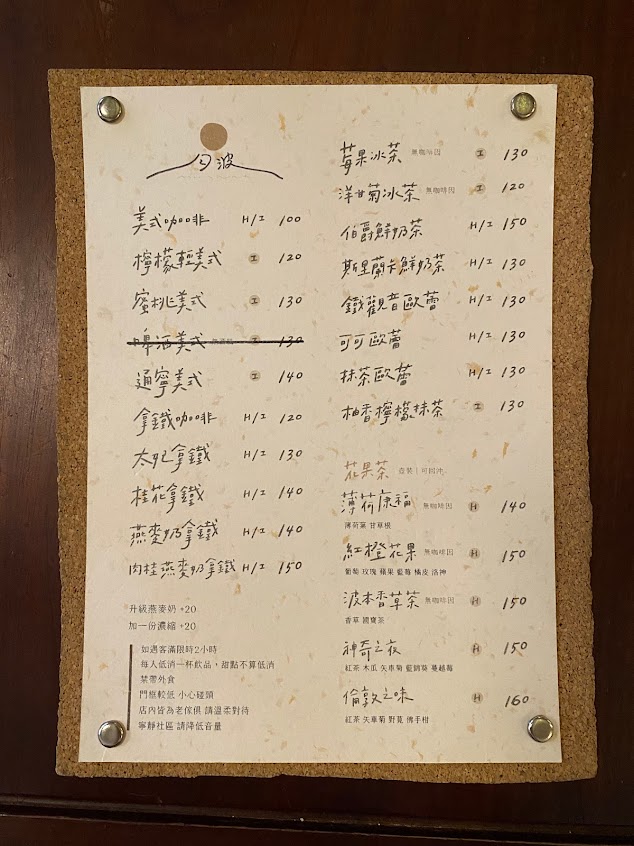 勻波
美式咖啡 H/I 100
檸檬輕美式 I 120
蜜桃美式 I 130
啤酒美式 I 130
通寧美式 I 140
拿鐵咖啡 H/I 120
太妃拿鐵 H/I 130
桂花拿鐵 H/I 140
燕麥奶拿鐵 H/I 140
肉桂燕麥奶拿鐵 H/I 150
升級燕麥奶 +20
加一份濃縮 +20
如遇客滿限時2小時
每人低消一杯飲品,甜點不算低消
禁帶外食
門框較低 小心碰頭
店內皆為老傢俱 請溫柔對待
寧靜社區 請降低音量
莓果冰茶 無咖啡因 I 130
洋甘菊冰茶 無咖啡因 I 120
伯爵鮮奶茶 H/I 150
斯里蘭卡鮮奶茶 H/I 130
鐵觀音歐蕾 H/I 130
可可歐蕾 H/I 130
抹茶歐蕾 H/I 130
柚香檸檬抹茶 I 130
花果茶 壺裝|可回沖
薄荷康福 無咖啡因 H 140
薄荷葉 甘草根
紅橙花果 無咖啡因 H 150
葡萄 玫瑰 蘋果 藍莓 橘皮 洛神
波本香草茶 無咖啡因 H 150
香草 國寶茶
神奇之夜 H 150
紅茶 木瓜 矢車菊 藍錦葵 蔓越莓
倫敦之味 H 160
紅茶 矢車菊 對莧 佛手柑